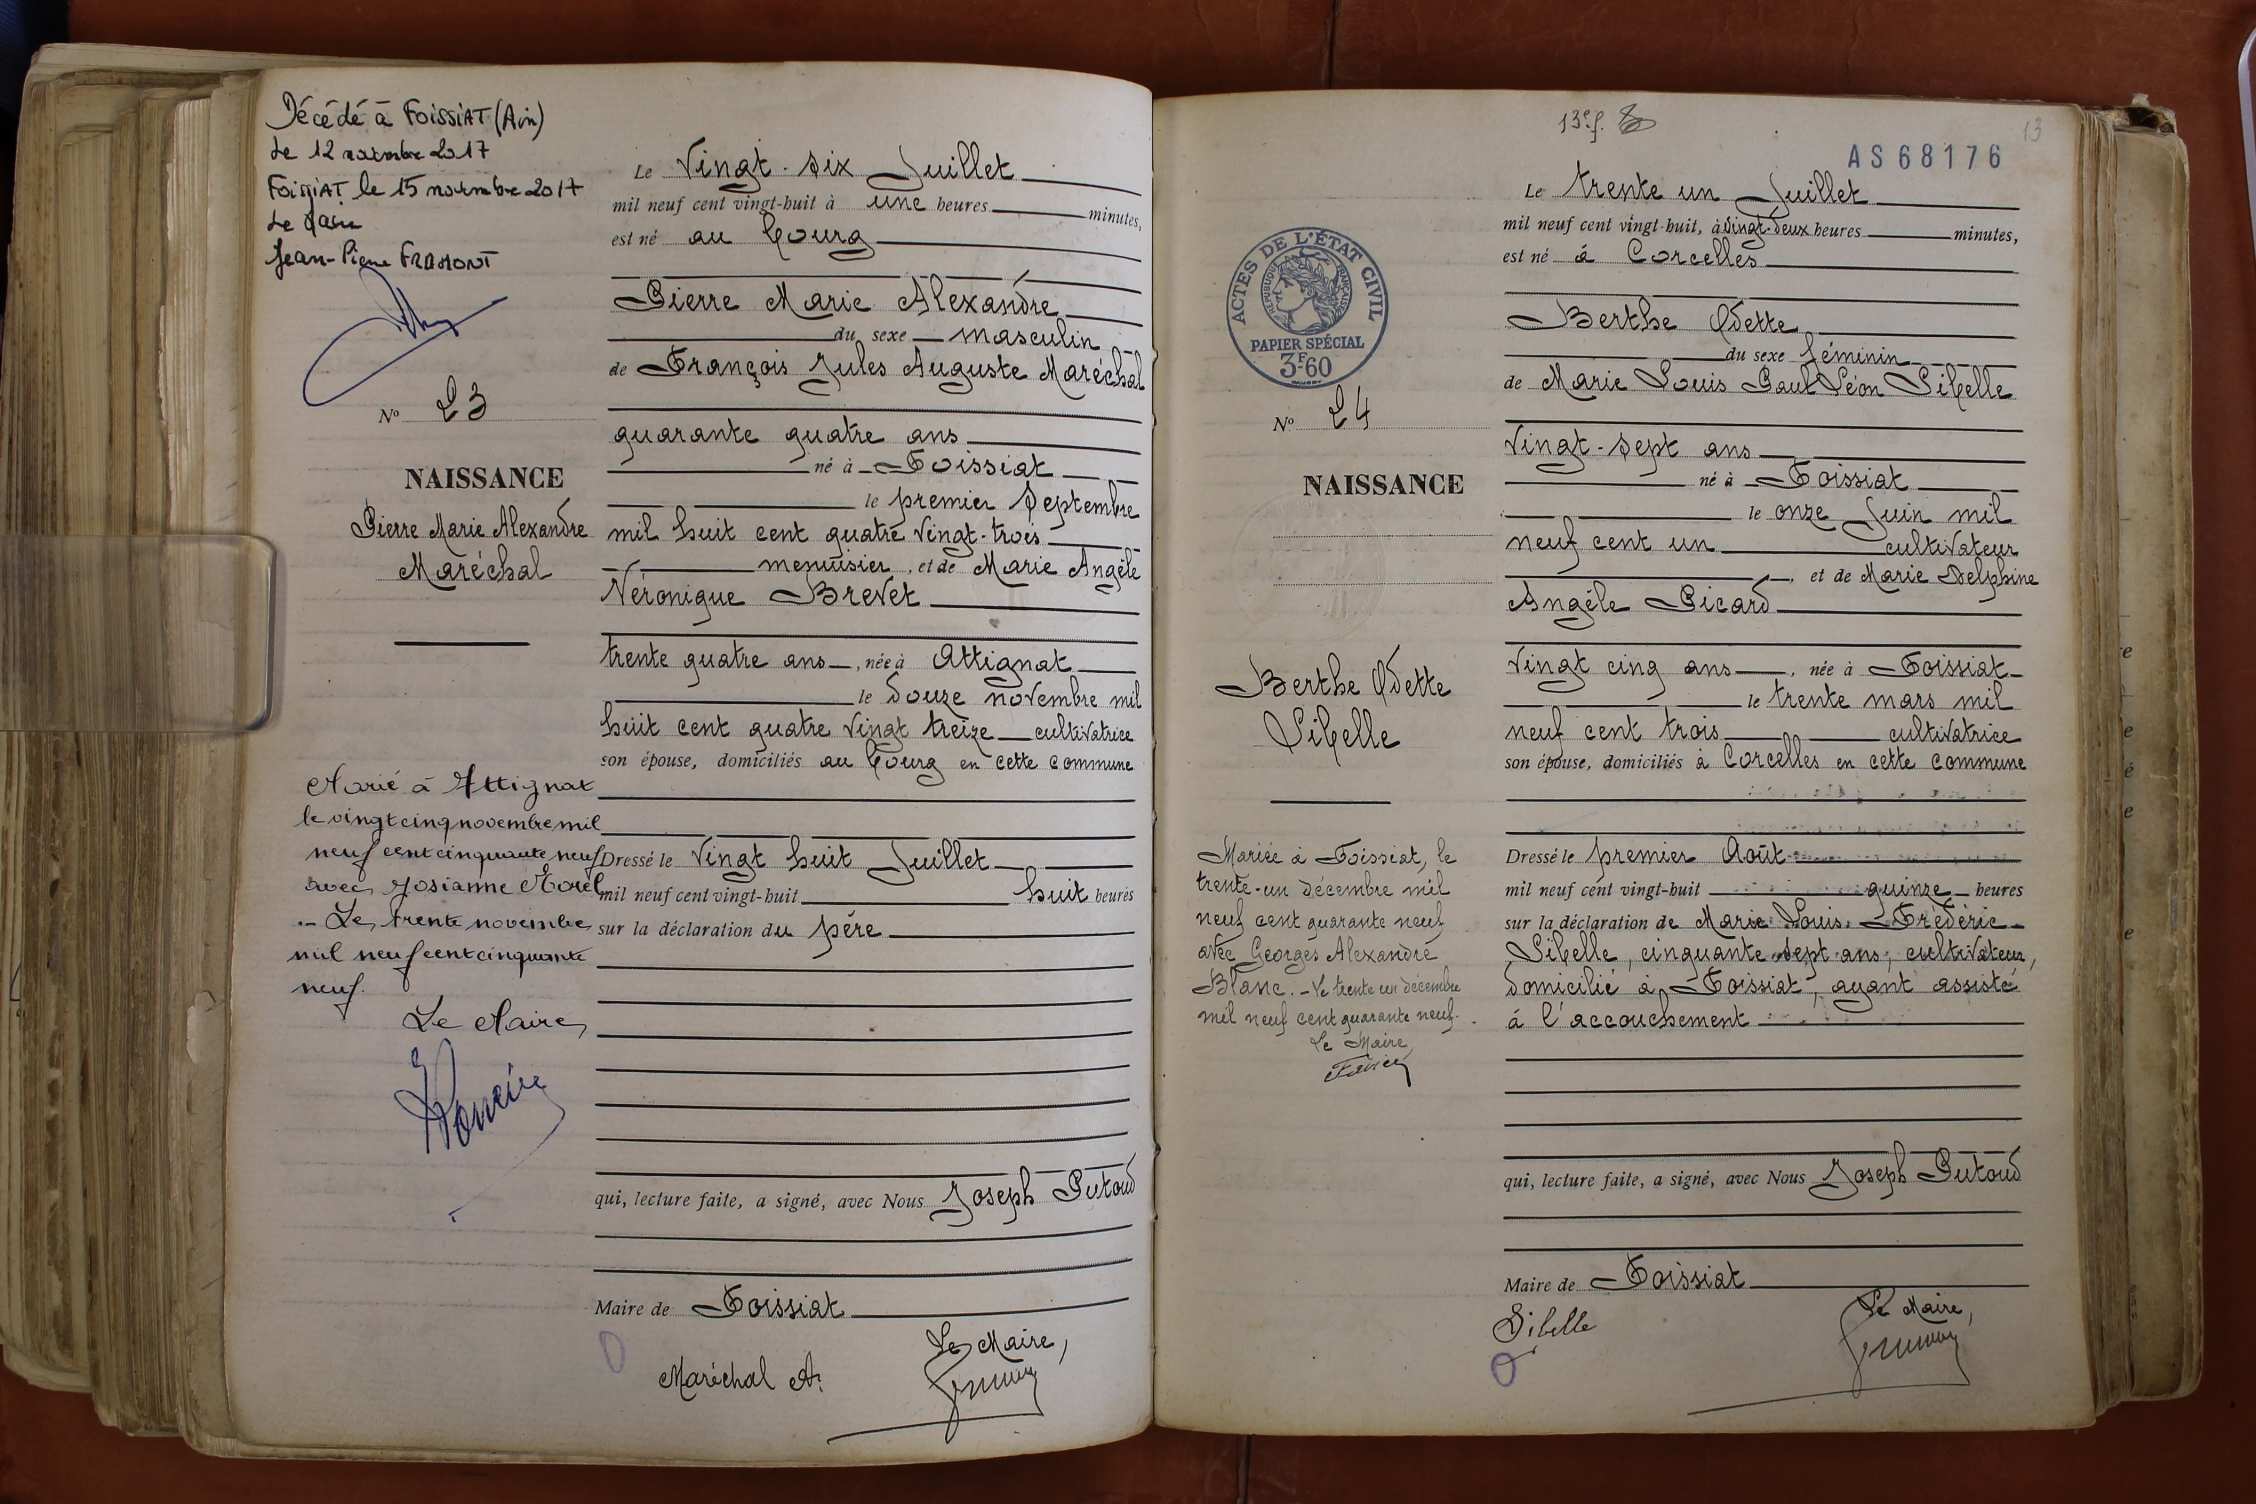 Décédé à FOISSIAT (Ain)
Le 12 novembre 2017
FOISSIAT le 15 novembre 2017
Le Maire
Jean-Pierre FROMONT
N° 23
NAISSANCE
Pierre Marie Alexandre
Maréchal
Marié à Attignat
le vingt cinq novembre mil
neuf cent cinquante neuf
avec Josianne Morel
.- Le trente novembre
mil neuf cent cinquante
neuf.
Le Maire,
Le Vingt-six Juillet
mil neuf cent vingt-huit à une heures minutes,
est né au bourg
Pierre Marie Alexandre
du sexe masculin
de François Jules Auguste Maréchal
quarante quatre ans
né à Foissiat
le premier Septembre
mil huit cent quatre vingt-trois
menuisier, et de Marie Angèle
Véronique Brevet
trente quatre ans, née à Attignat
le douze novembre mil
huit cent quatre vingt treize cultivatrice
son épouse, domiciliés au bourg en cette commune
Dressé le vingt huit Juillet
mil neuf cent vingt-huit huit heures
sur la déclaration du père
qui, lecture faite, a signé, avec Nous Joseph Putoud
Maire de Foissiat
Le Maire,
Maréchal A.
13e f.
13
AS68176
ACTES DE L'ÉTAT CIVIL
RÉPUBLIQUE FRANÇAISE
PAPIER SPÉCIAL
3F60
N° 24
NAISSANCE
Berthe Odette
Sibelle
Mariée à Foissiat, le
trente-un décembre mil
neuf cent quarante neuf
avec Georges Alexandre
Blanc. - Le trente un décembre
mil neuf cent quarante neuf.
Le Maire,
Le trente un Juillet
mil neuf cent vingt-huit, à vingt-deux heures minutes,
est né à Corcelles
Berthe Odette
du sexe féminin
de Marie Louis Paul Léon Sibelle
vingt-sept ans
né à Foissiat
le onze Juin mil
neuf cent un cultivateur
, et de Marie Delphine
Angèle Picard
vingt cinq ans, née à Foissiat
le trente mars mil
neuf cent trois cultivatrice
son épouse, domiciliés à Corcelles en cette commune
Dressé le premier Août
mil neuf cent vingt-huit quinze heures
sur la déclaration de Marie Louis Frédéric
Sibelle, cinquante sept ans, cultivateur,
domicilié à Foissiat, ayant assisté
à l'accouchement
qui, lecture faite, a signé, avec Nous Joseph Putoud
Maire de Foissiat
Le Maire,
Sibelle